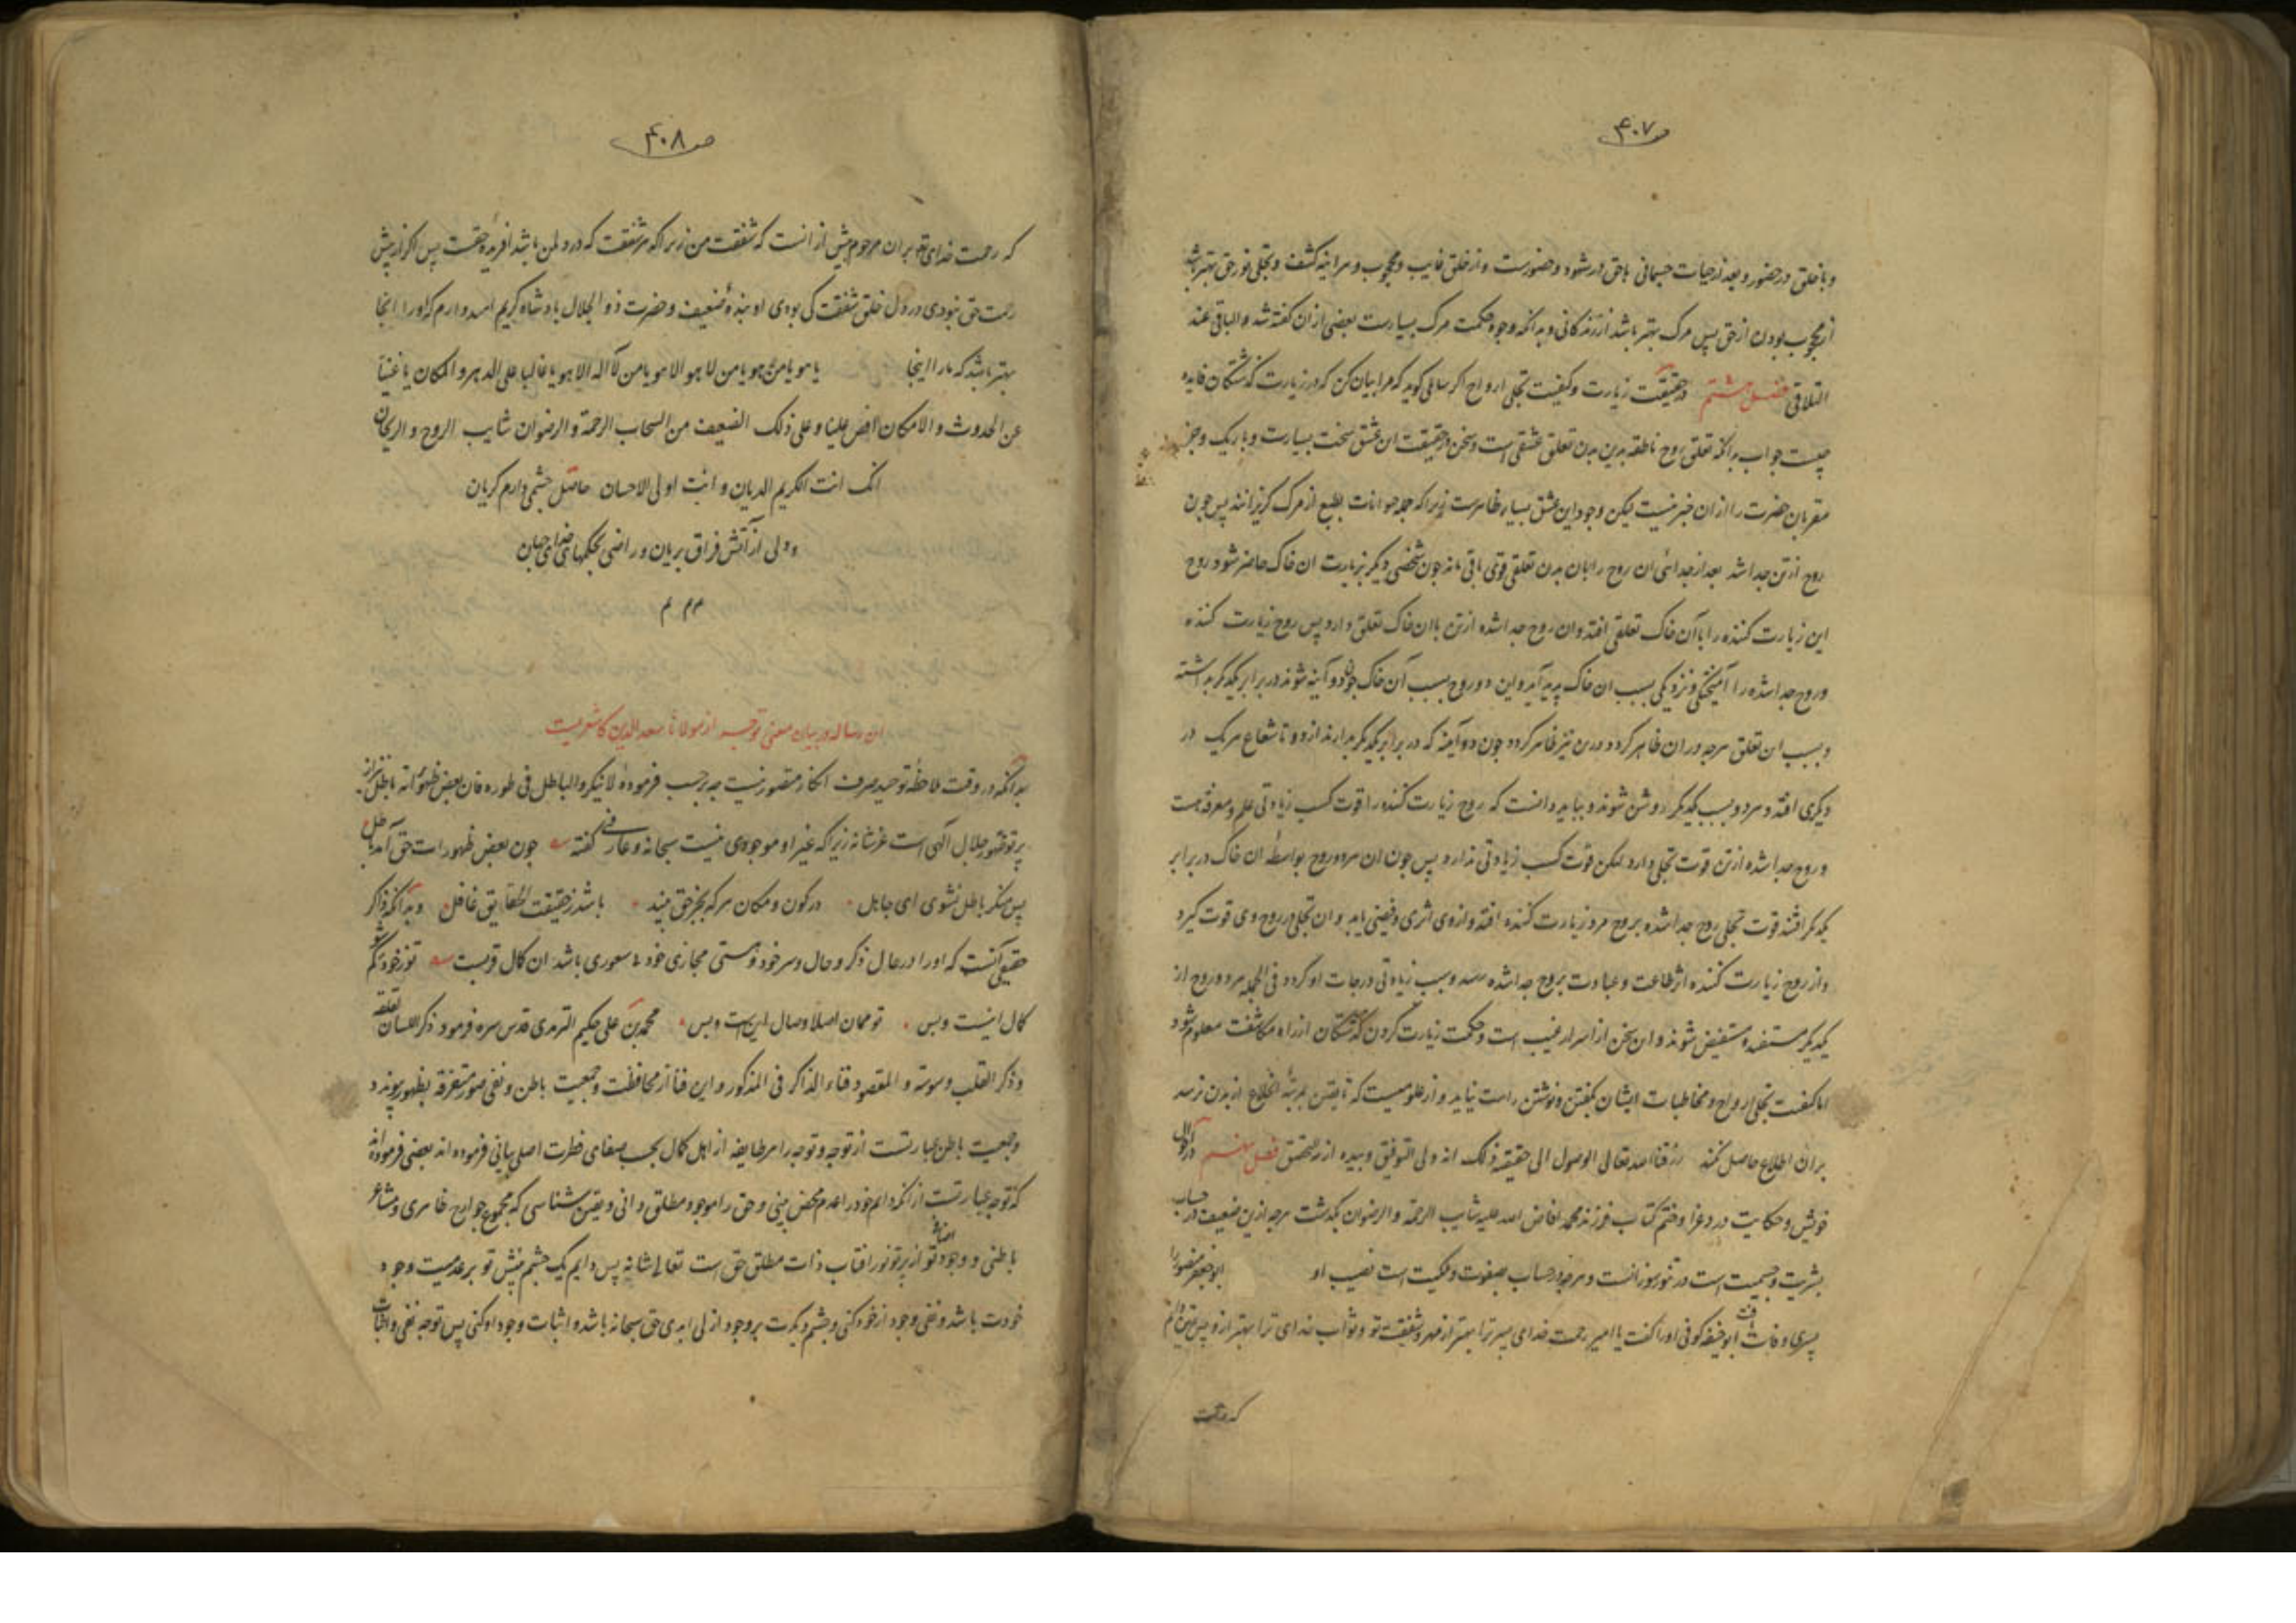 ص ۴۰۷
و با خلق در حضور و بعد از حیات جسمانی با حق در شهود و حضورست و از خلق غایب و محجوب و هر اینه کشف و تجلی نور حق بهتر باشد
از محجوب بودن از حق پس مرک بهتر باشد از زندکانی و بدانکه وجوه حکمت مرک بسیارست بعضی ازان کفته شد و الباقی عند
التلاقی فصل هشتم در حقیقت زیارت و کیفیت تجلی ارواح اکر سایلی کوید که مرا بیان کن که در زیارت کذشتکان فایده
چیست جواب بدانکه تعلق روح ناطقه بدین بدن تعلق عشقی است و سخن در حقیقت این عشق سخت بسیارست و باریک و جز
مقربان حضرت را ازان خبر نیست لیکن وجود این عشق بسیار ظاهرست زیرا که جمله حیوانات بطبع از مرک کریزانند پس چون
روح از تن جدا شد بعد از جدائی ان روح را بان بدن تعلقی قوی باقی ماند چون شخصی دیکر بزیارت ان خاک حاضر شود روح
این زیارت کننده را باآن خاک تعلقی افتد و ان روح جدا شده از تن باان خاک تعلق دارد پس روح زیارت کننده
و روح جدا شده را آمیختکی و نزدیکی بسبب ان خاک پدید آید و این دو روح بسبب آن خاک چون دو آینه شوند در برابر یکدیکر بداشته
و بسبب ان تعلق هرچه در ان ظاهر کردد درین نیز ظاهر کردد چون دو آینه که در برابر یکدیکر بدارند از دو تا شعاع هر یک در
دیکری افتد و هر دو بسبب یکدیکر روشن شوند و بباید دانست که روح زیارت کننده را قوت کسب زیادتی علم و معرفت هست
و روح جدا شده از تن قوت تجلی دارد لیکن قوت کسب زیادتی ندارد پس چون ان هر دو روح بواسطه ان خاک در برابر
یکدیکر افتند قوت تجلی روح جدا شده بروح مرد زیارت کننده افتد و ازوی اثری و فیضی یابد و ان تجلی در روح وی قوت کیرد
و از روح زیارت کننده اثر طاعت و عبادت بروح جدا شده رسد و سبب زیادتی درجات او کردد فی الجمله هر دو روح از
یکدیکر مستفید و مستفیض شوند و ان سخن از اسرار غیب است و حکمت زیارت کردن کذشتکان از راه مکاشفت معلوم شود
اما کیفیت تجلی ارواح و مخاطبات ایشان بکفتن و نوشتن راست نیاید و از علومیست که تا یقین بمرتبه انخلاع از بدن نرسد
بران اطلاع حاصل نکند رزقنا الله تعالی الوصول الی حقیقة ذلک انه ولی التوفیق و بیده ازمة التحقیق فصل نهم در احوال
خویش و حکایت در عزا و ختم کتاب فرزند محمد افاض الله علیه شآبیب الرحمة و الرضوان بکذشت هرچه ازین ضعیف در حساب
بشریت و جسمیت است در تنور سوزانست و هرچه در حساب صفوت و ملکیت است نصیب او ابو جعفر منصور را
پسری وفات یافت ابو حنیفه کوفی او را کفت یا امیر رحمت خدای پسر ترا بهتر از مهر و شفقت تو و ثواب خدای ترا بهتر از و پس یقین دانم
که رحمت
ص ۴۰۸
که رحمت خدای تع بران مرحوم بیش از انست که شفقت من زیرا که هر شفقت که در دل من باشد افریده حقست پس اکر از پیش
رحمت حق نبودی در دل خلق شفقت کی بودی او بنده ضعیف و حضرت ذو الجلال پادشاه کریم امیدوارم که او را انجا
بهتر باشد که ما را اینجا یا هو یا من هو یا من لا هو الا هو یا من لا اله الا هو یا غالبا علی الدهر و المکان یا غنیا
عن الحدوث و الامکان افض علینا و علی ذلک الضعیف من السحاب الرحمة و الرضوان شآبیب الروح و الریحان
انک انت الکریم الدیان و انت اولی الاحسان حاصل چشمی دارم کریان
و دلی از آتش فراق بریان و راضی بحکمهای خدای جهان
م م م
این رساله در بیان معنی توجه از مولانا سعد الدین کاشغریست
بدانکه در وقت ملاحظه توحید صرف انکار متصور نیست چه برحسب فرموده لا تنکر الباطل فی طوره فانه بعض ظهوراته باطل نیز از
پرتو ظهور جلال الهی است عز شانه زیرا که غیر او موجودی نیست سبحانه و عارفی کفته چون بعض ظهورات حق آمد باطل
پس منکر باطل نشوی ای جاهل در کون و مکان هر که بجز حق بیند باشد ز حقیقت الحقایق غافل و بدانکه ذاکر
حقیقی آنست که او را در حال ذکر و حال و سر خود و هستی مجازی خود شعوری نباشد ان کمال قربست تو ز خود کم شو
کمال اینست و بس تو ممان اصلا وصال اینست و بس محمد بن علی حکیم الترمدی قدس سره فرمود ذکر اللسان لقلقه
و ذکر القلب وسوسة و المقصود فناء الذاکر فی المذکور و این فنا از محافظت و جمعیت باطن و نفی صور متفرقه بظهور پیوندد
و جمعیت باطن عبارتست از توجه و توجه را هر طایفه از اهل کمال بحسب صفای فطرت اصلی بیانی فرموده اند بعضی فرموده اند
که توجه عبارتست از انکه دایم خود را عدم محض بینی و حق را موجود مطلق دانی و یقین شناسی که مجموع جوارح ظاهری و مشاعر
باطنی و وجود تو از پرتو نور افتاب ذات مطلق حق است تعالی شانه پس دایم یک چشم بینش تو بر عدمیت وجود
خودت باشد و نفی وجود از خود کنی و چشم دیکرت بر وجود ازلی ابدی حق سبحانه باشد و اثبات وجود او کنی پس توجه نفی و اثبات